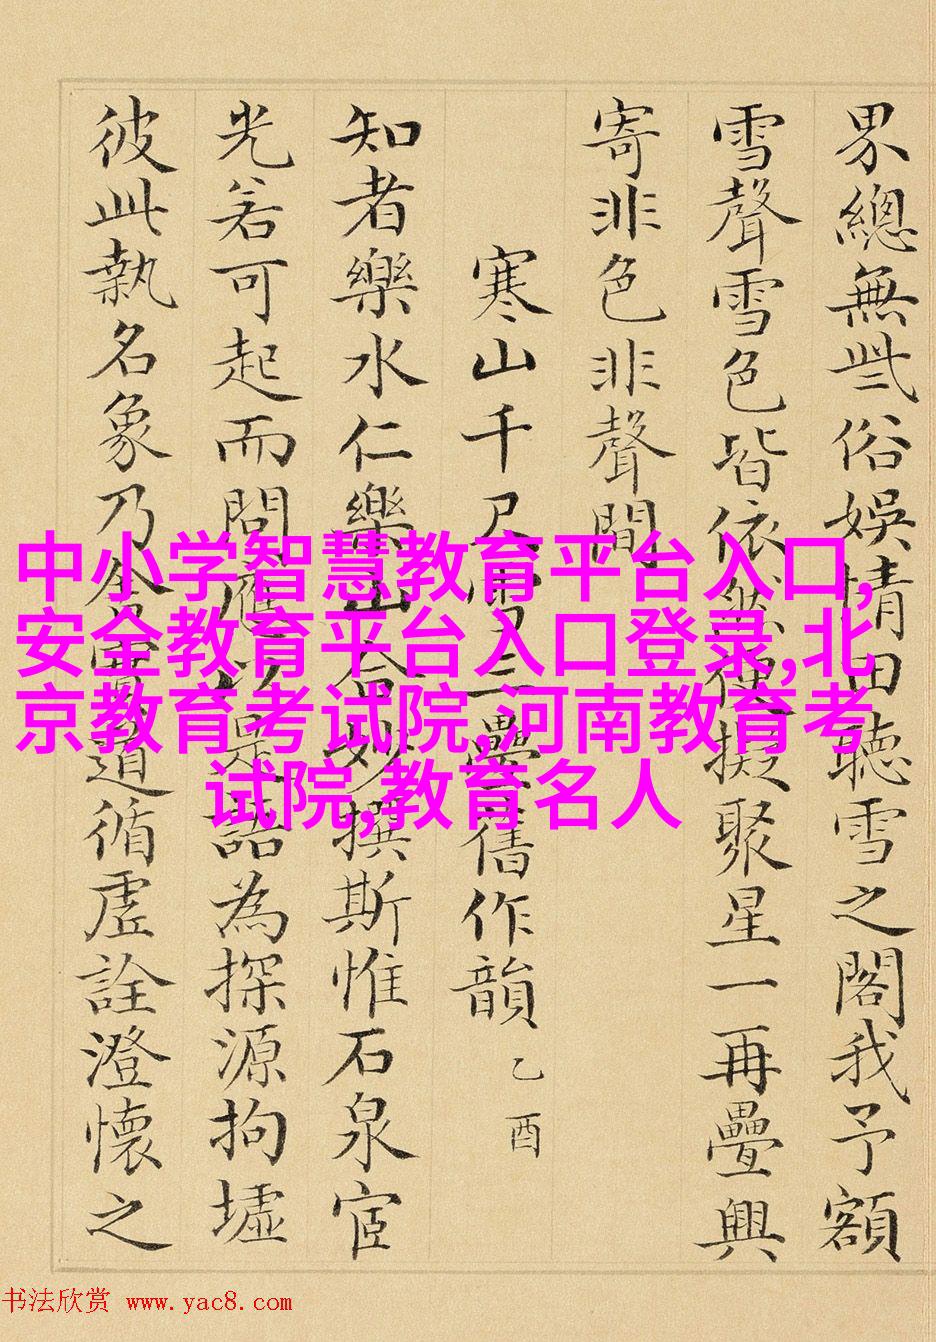 界總無些俗娛情田聽雪之閣我予額
雪聲雪色皆依然便擬聚星一再疊興
寄非色非聲間
寒山千尺雪三疊舊作韻 乙酉
知者樂水仁樂山合妙撰斯惟石泉宦
光若可起而問應以是語為探源拘墟
彼此執名象乃道循虛詮澄懷之
中小学智慧教育平台入口,
安全教育平台入口登录,北
京教育考试院,河南教育考
试院,教育名人
书法欣赏 www.yac8.com